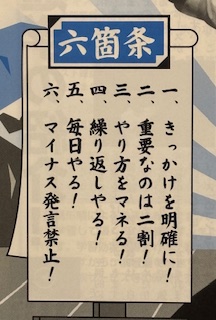 六箇条
一、きっかけを明確に！
二、重要なのは二割！
三、やり方をマネる！
四、繰り返しやる！
五、毎日やる！
六、マイナス発言禁止！